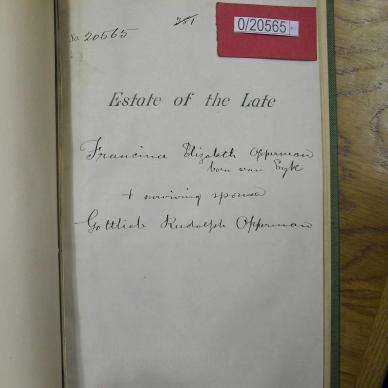 0/20565
No 20565
Estate of the Late
Francina Elizabeth Opperman
born van Eyk
+ surviving spouse
Gottlieb Rudolph Opperman